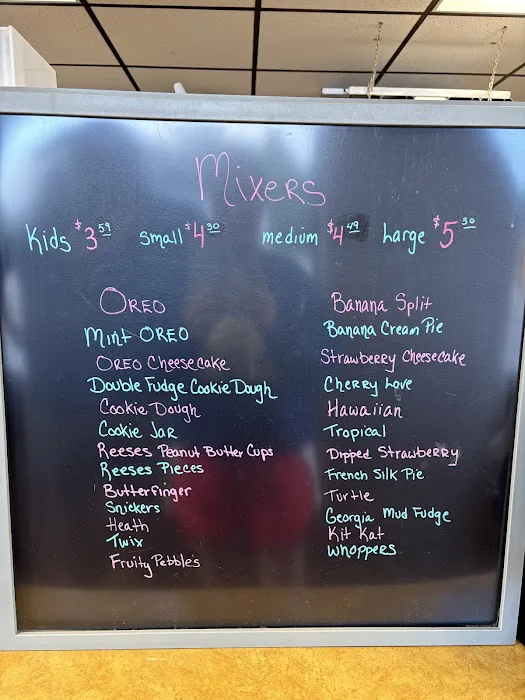 Mixers
Kids $3.59 small $4.30 medium $4.49 Large $5.30
OREO
Mint OREO
OREO Cheesecake
Double Fudge Cookie Dough
Cookie Dough
Cookie Jar
Reeses Peanut Butter Cups
Reeses Pieces
Butterfinger
Snickers
Heath
Twix
Fruity Pebbles
Banana Split
Banana Cream Pie
Strawberry Cheesecake
Cherry Love
Hawaiian
Tropical
Dipped Strawberry
French Silk Pie
Turtle
Georgia Mud Fudge
Kit Kat
Whoppers